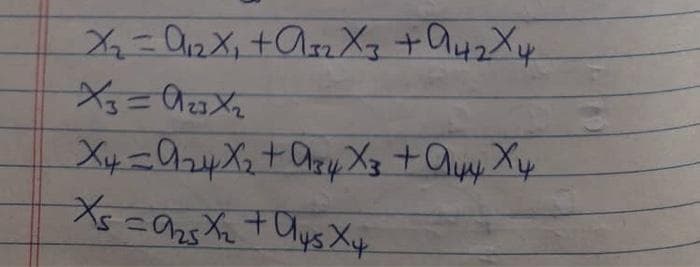 x₂ = a₁₂x₁ + a₃₂x₃ + a₄₂x₄
x₃ = a₂₃x₂
x₄ = a₂₄x₂ + a₃₄x₃ + a₄₄x₄
x₅ = a₂₅x₂ + a₄₅x₄